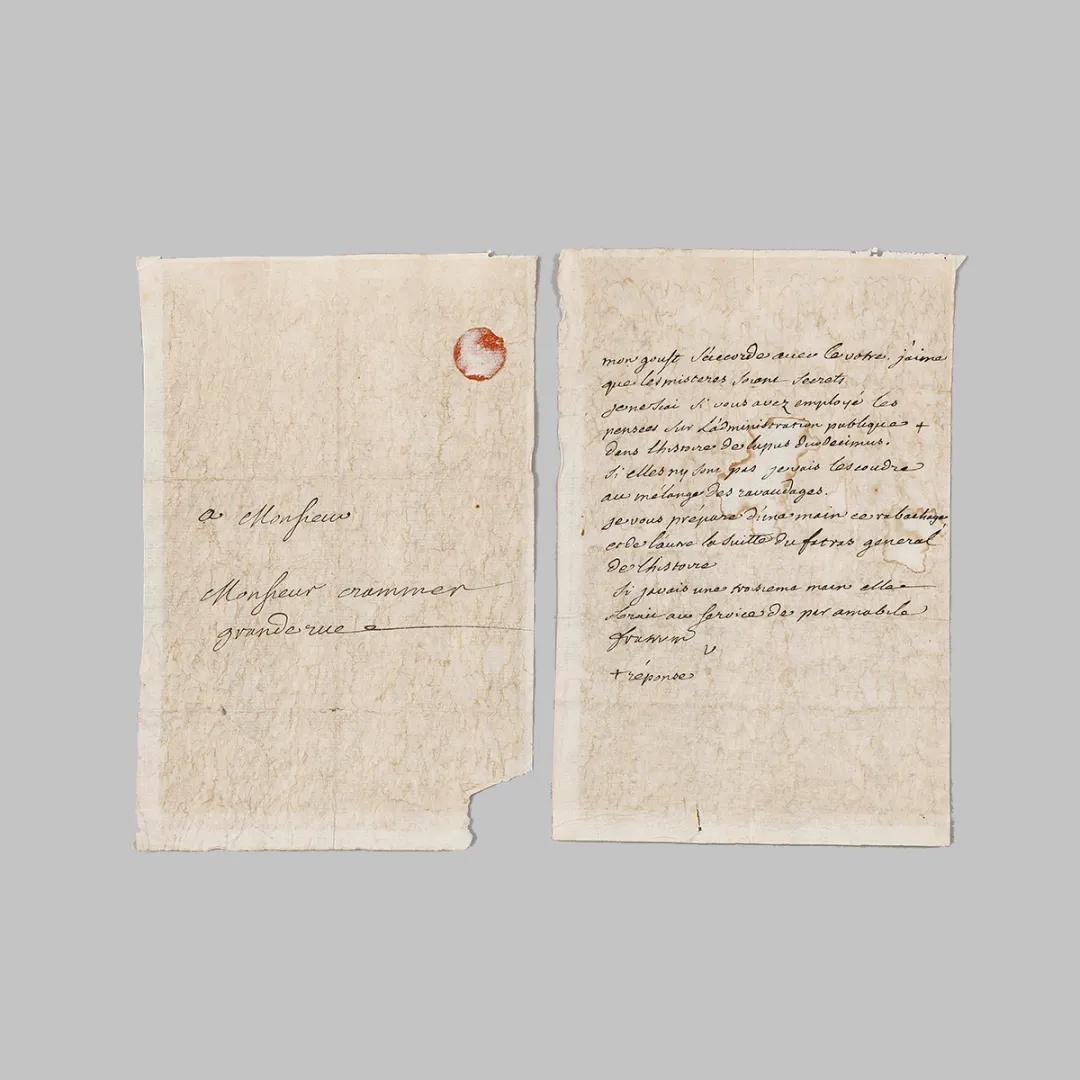 a Monsieur
Monsieur crammer
grande rue
mon goust s'accorde avec le votre. j'aime
que les misteres soient secrets
je ne sai si vous avez employé les
pensées sur l'administration publique +
dans l'histoire de lupus duodecimus.
si elles ny sont pas je vais les coudre
au mélange des ravaudages.
je vous prépare d'une main ce rabachage
et de l'autre la suitte du fatras general
de l'histoire
si javais une troisieme main elle
serait au service de par amabile
fratrum
V
+ réponse